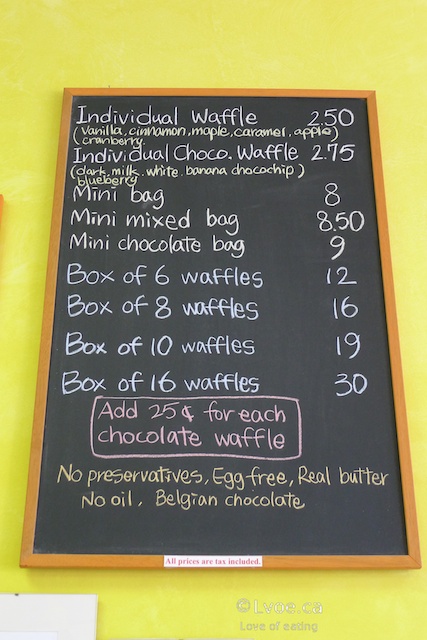 Individual Waffle 2.50
(Vanilla, cinnamon, maple, caramel, apple)
cranberry
Individual Choco. Waffle 2.75
(dark, milk, white, banana chocochip)
blueberry
Mini bag 8
Mini mixed bag 8.50
Mini chocolate bag 9
Box of 6 waffles 12
Box of 8 waffles 16
Box of 10 waffles 19
Box of 16 waffles 30
Add 25¢ for each
chocolate waffle
No preservatives, Egg-free, Real butter
No oil, Belgian chocolate
All prices are tax included.
© Lvoe.ca
Love of eating